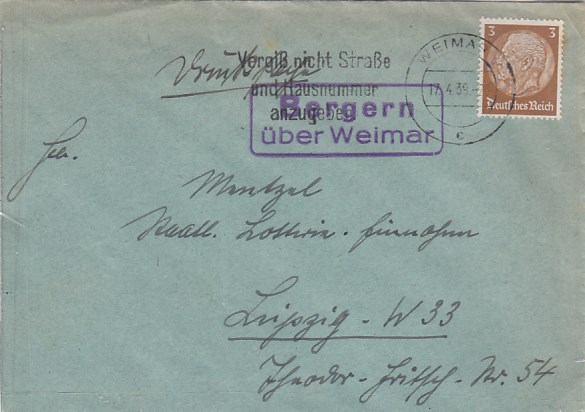 Drucksache
Vergiß nicht Straße
und Hausnummer
anzugeben
WEIMAR
17.4.39.
c
3 3
Deutsches Reich
Bergern
über Weimar
Mentzel
Staatl. Lotterie-Einnahme
Leipzig - W 33
Theodor-Fritsch-Str. 54